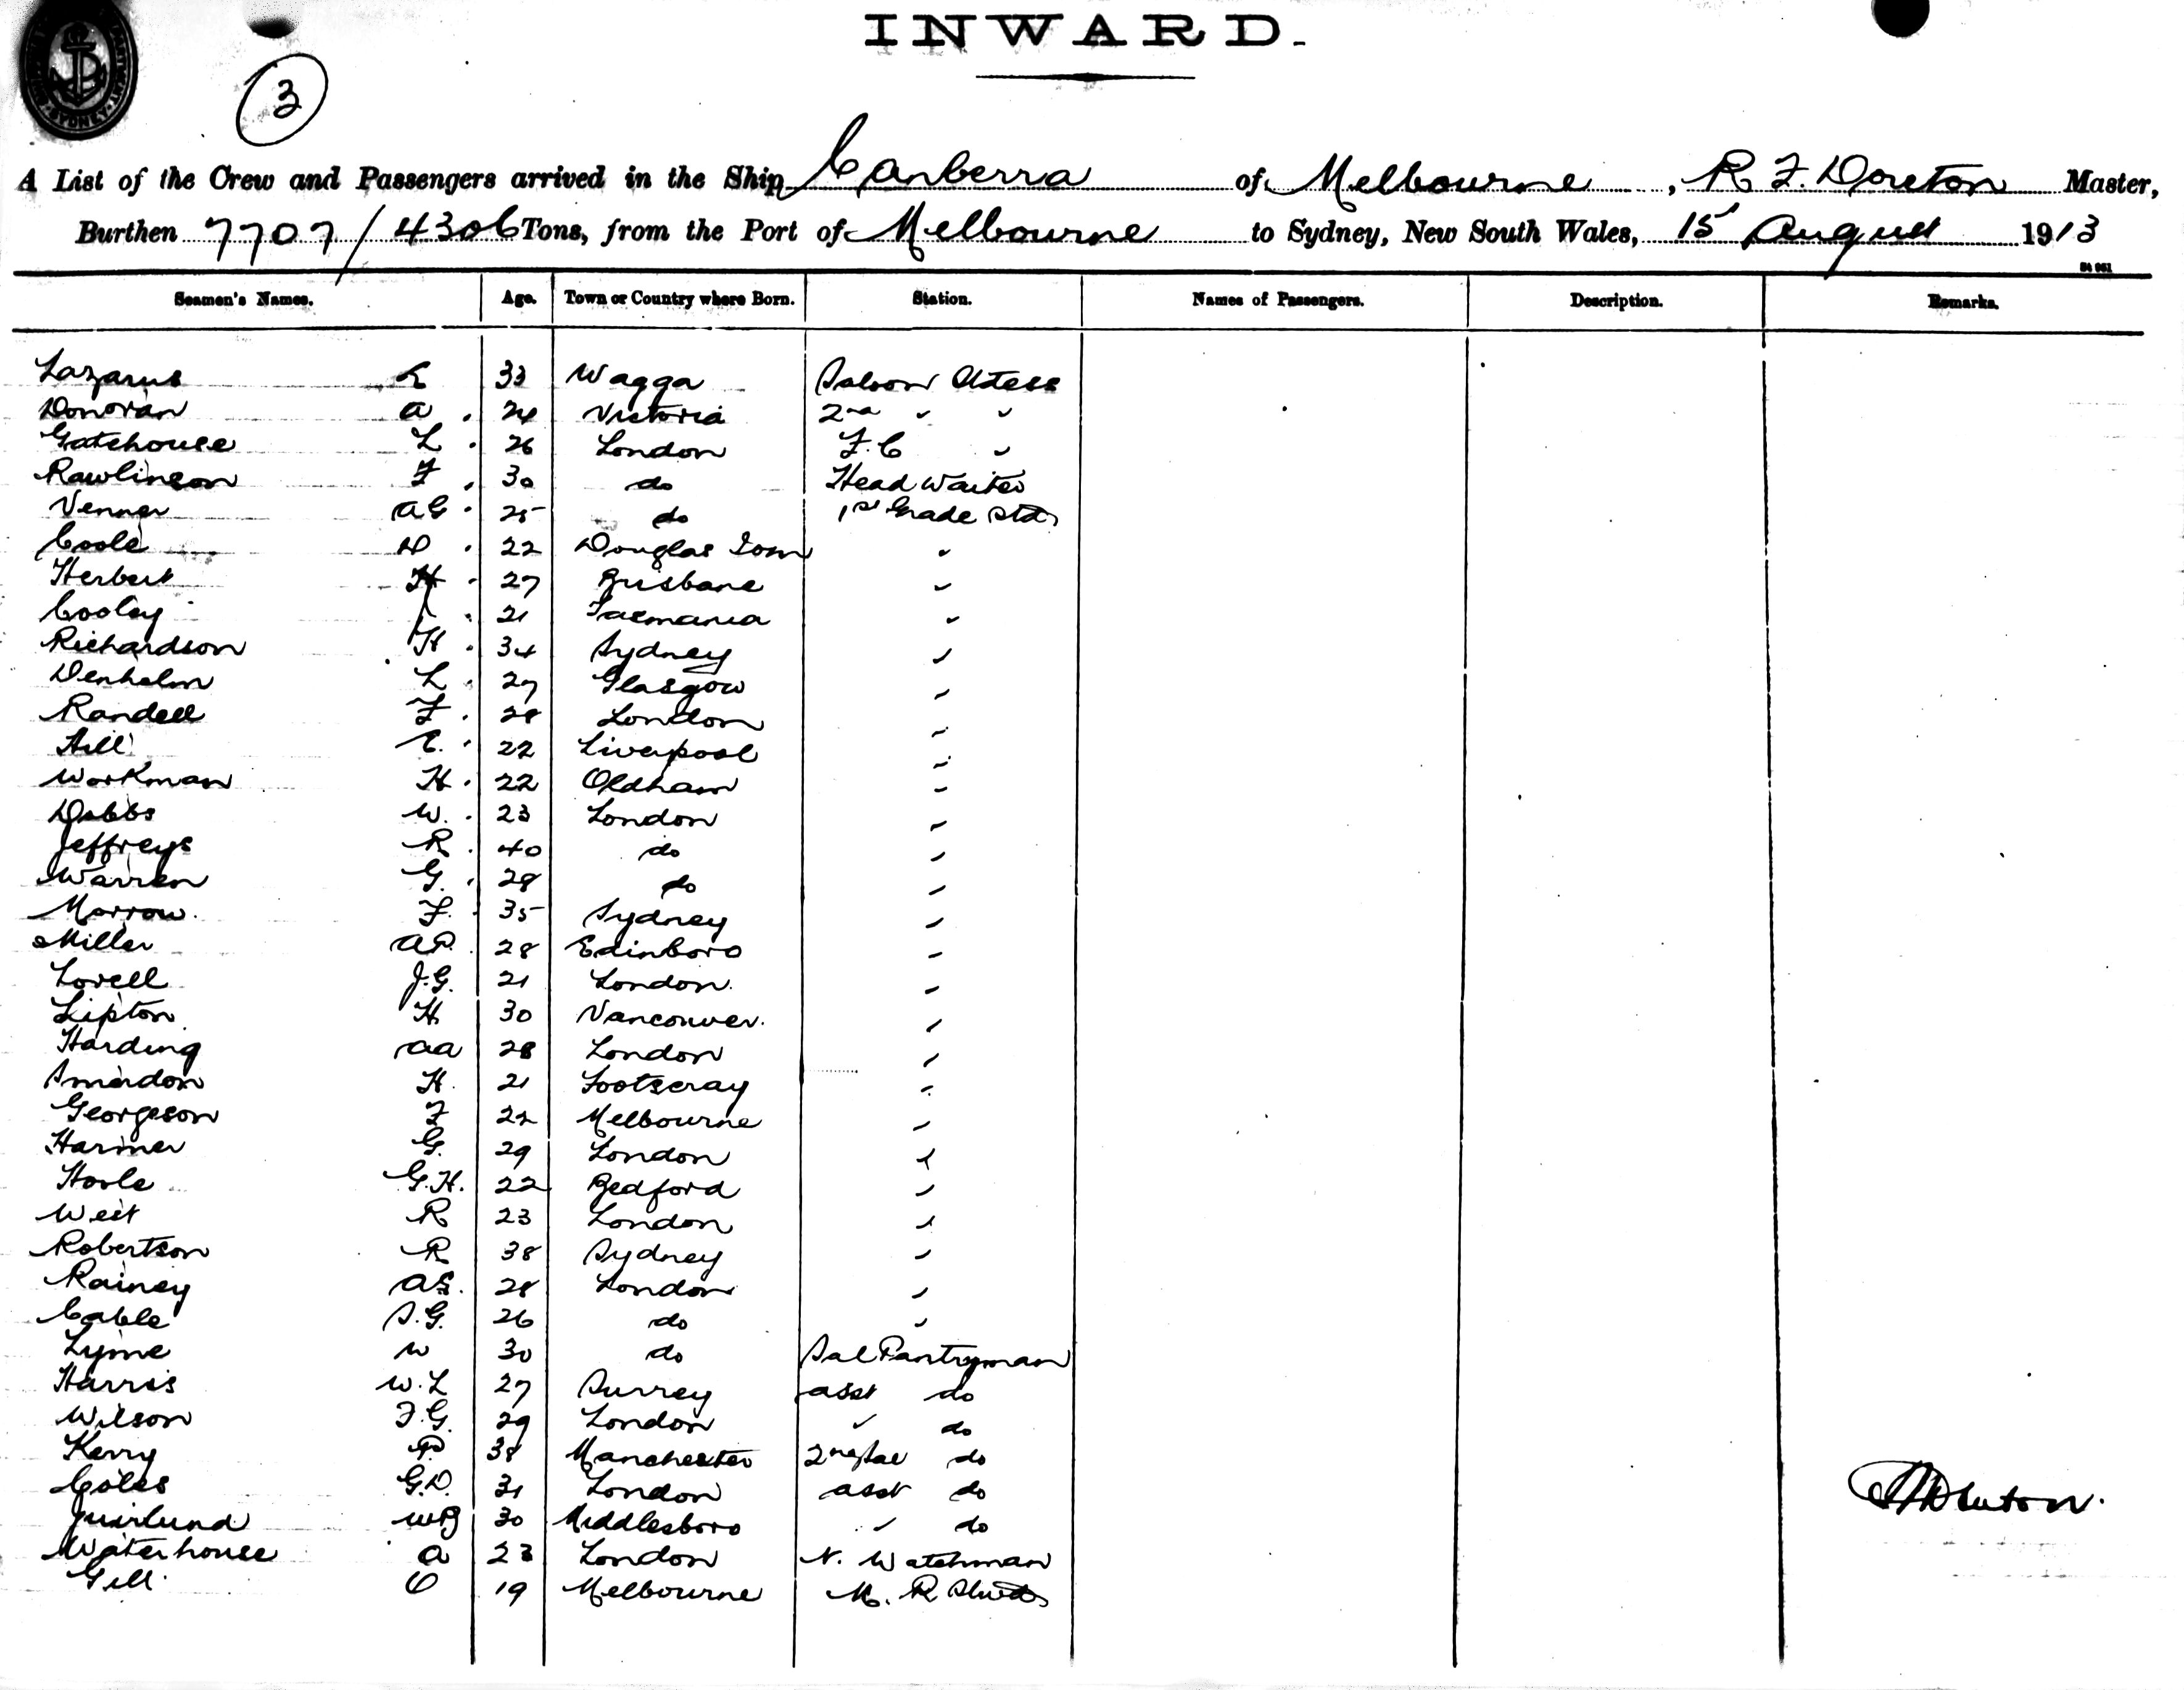 INWARD.
3
SYDNEY
A List of the Crew and Passengers arrived in the Ship Canberra of Melbourne, R F. Doreton Master,
Burthen 7707/4306 Tons, from the Port of Melbourne to Sydney, New South Wales, 15 August 1913
Seamen's Names. Age. Town or Country where Born. Station. Names of Passengers. Description. Remarks.
Lazarus 33 Wagga Saloon
Donovan A 24 Victoria 2nd " "
Gatehouse L 26 London F.C "
Rawlinson F 30 do Head Waiter
Venner AG 25 do 1st Grade Std
Coole D 22 Douglas Iom "
Herbert H 27 Brisbane "
Cooley 21 Tasmania "
Richardson H 34 Sydney "
Denholm L 27 Glasgow "
Randell F 28 London "
Hill E. 22 Liverpool "
Workman H 22 Oldham "
Dobbs W. 23 London "
Jeffreys R 40 do "
Warren G. 28 do "
Morrow F. 35 Sydney "
Miller AP. 28 Edinboro "
Lovell J.G. 21 London "
Lipton H 30 Vancouver. "
Harding AA 28 London "
Smerdon H. 21 Footscray "
Georgeson F 22 Melbourne "
Harmer G. 29 London "
Hoole G.H. 22 Bedford "
West R 23 London "
Robertson R 38 Sydney "
Rainey AS. 28 London "
Cable S.G. 26 do "
Lyme W 30 do Sal Pantryman
Harris W.L 27 Surrey asst do
Wilson F.G. 29 London " do
Kerry P. 38 Manchester 2nd Sal do
Coles G.D. 31 London asst do
WB 30 Middlesboro " do
Waterhouse A 23 London N. Watchman
Gill O 19 Melbourne M. R